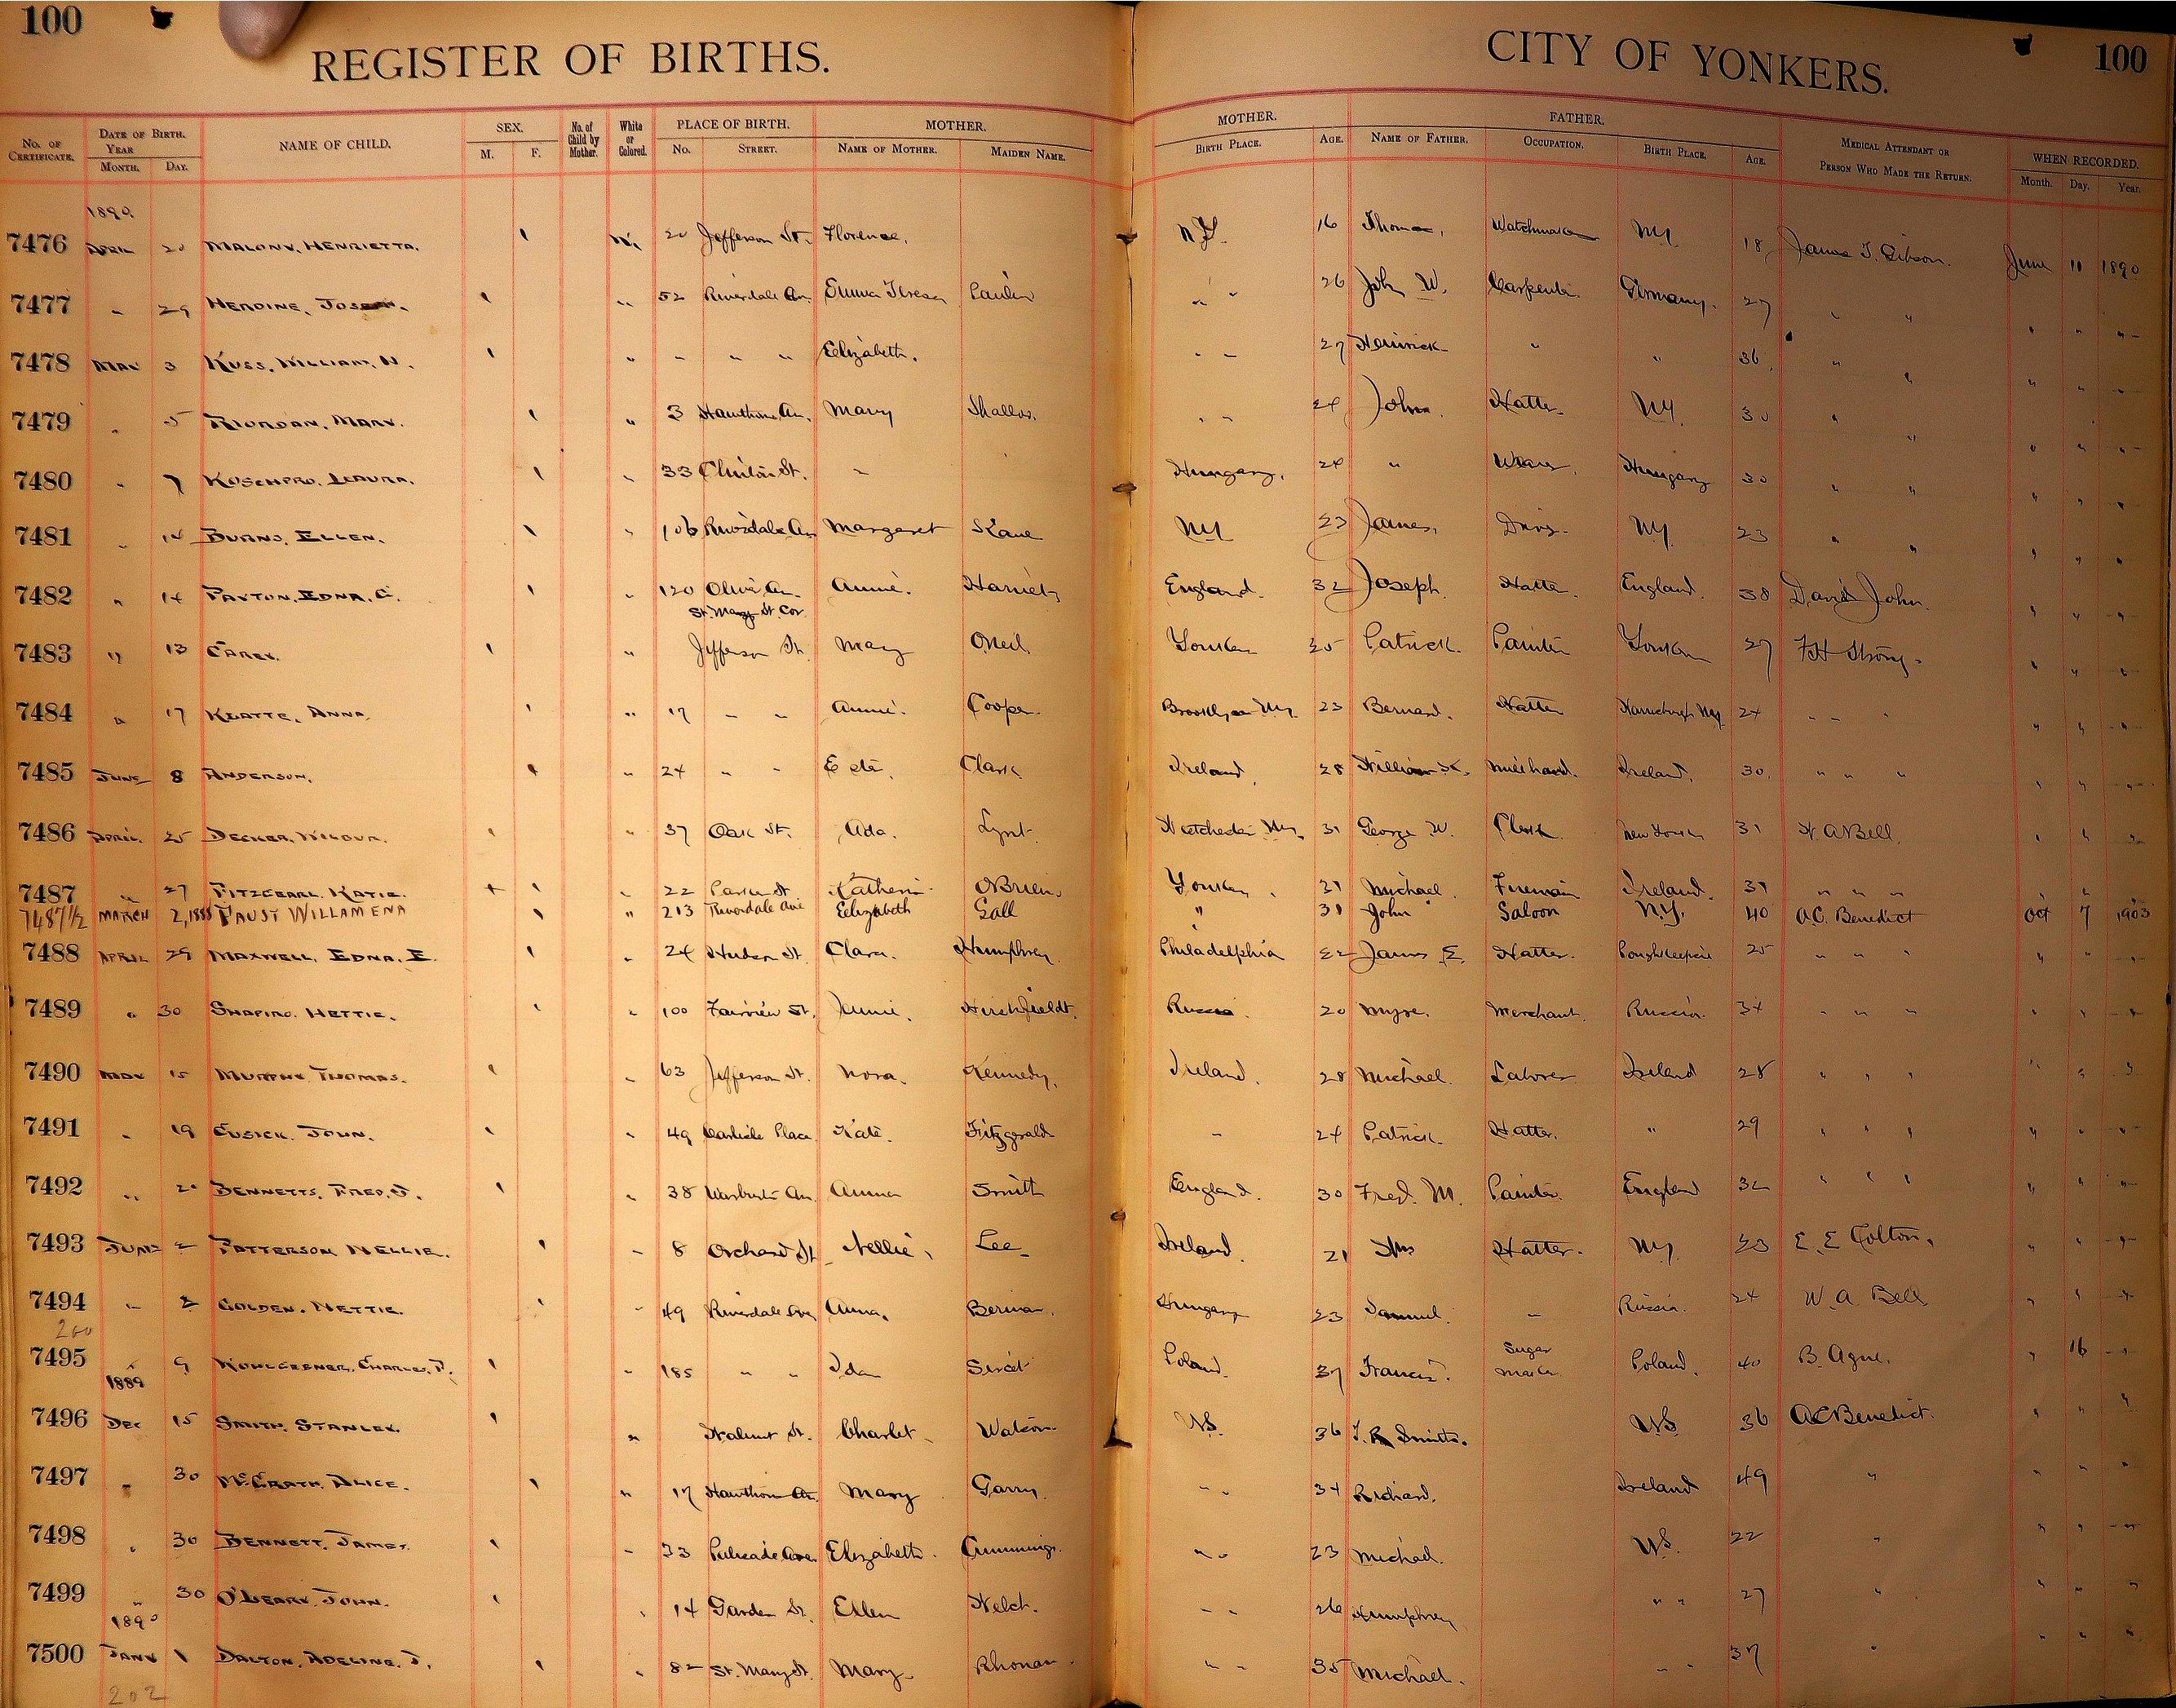 100
REGISTER OF BIRTHS.
CITY OF YONKERS.
100
No. of Certificate. DATE OF BIRTH. YEAR MONTH. DAY. NAME OF CHILD. SEX. M. F. No. of Child by Mother. White or Colored. PLACE OF BIRTH. No. STREET. MOTHER. NAME OF MOTHER. MAIDEN NAME. MOTHER. BIRTH PLACE. AGE. FATHER. NAME OF FATHER. OCCUPATION. BIRTH PLACE. AGE. MEDICAL ATTENDANT OR PERSON WHO MADE THE RETURN. WHEN RECORDED. Month. Day. Year.
1890.
7476 APRIL 20 MALONY, HENRIETTA. W. 20 Jefferson St. Florence, N.Y. 16 Thomas, Watchman NY 18 James T. Gibson. June 11 1890
7477 " 29 HERDINE, JOSEPH. " 52 Riverdale Av. Emma Teresa " " 26 John W. Carpenter. Germany. 27 " "
7478 MAY 3 KUSS, WILLIAM, N. " " " " Elizabeth. " " 27 " " 36 " "
7479 " 5 RIORDAN, MARY. " 3 Hawthorne Av. Mary " " 24 John. Hatter NY. 30 " "
7480 " 7 " 33 Clinton St. " Hungary. 24 " Hungary 30 " "
7481 " 14 BURNS, ELLEN. " 106 Riverdale Av Margaret Kane NY 23 James, NY. 23 " "
7482 " 14 PAXTON, EDNA, C. " 120 Olive Av. Annie. England. 32 Joseph. Hatter. England. 38 David John.
St. Mary St. Cor.
7483 " 13 CAREY. " Jefferson St. Mary ONeil. Yonkers 25 Patrick. Painter Yonkers 27 FH Strong.
7484 " 17 KLATTE, ANNA " 17 " " Annie. Cooper. Brooklyn NY. 23 Bernard. Hatter 24 " "
7485 JUNE 8 ANDERSON. " 24 " " Clark. Ireland. 28 William Merchand. Ireland. 30. " " "
7486 APRIL 25 DECKER, WILBUR. " 37 Oak St. Ada. Lynt. Westchester NY. 31 George W. Clerk New York 31 W A Bell.
7487 " 27 FITZGEARL KATIE. " 22 St Katherin OBrien. Yonkers. 31 Michael. Fireman Ireland. 31 " " "
7487 1/2 MARCH 2,1888 FAUST WILLAMENA " 213 Riverdale Ave Elizabeth Gall " 31 John Saloon N.Y. 40 A.C. Benedict Oct 7 1903
7488 APRIL 29 MAXWELL, EDNA, E. " 24 Clara. Humphrey Philadelphia 22 James E. Hatter. Poughkeepsie 25 " " "
7489 " 30 SHAPIRO, HETTIE. " 100 Fairview St. Jennie. Hirshfieldt. Russia. 20 Merchant. Russia. 34 " " "
7490 MAY 15 MURPHY THOMAS. " 63 Jefferson St. Nora. Kennedy. Ireland. 28 Michael. Laborer Ireland 28 " " "
7491 " 19 CUSICK. JOHN. " 49 Carlisle Place Kate. Fitzgerald " 24 Patrick. Hatter. " 29 " " "
7492 " BENNETTS, FRED, J. " 38 Warburton Av. Anna Smith England. 30 Fred. M. Painter. England 32 " " "
7493 JUNE 2 PATTERSON NELLIE. " 8 Orchard St. Nellie, Lee Ireland. 21 Hatter. NY. 23 E. E Colton.
7494 " 2 GOLDEN. NETTIE. " 49 Riverdale Ave Anna. Berman. Hungary 23 Samuel. " Russia. 24 W. A Bell
200
7495 " 9 " 185 " " Ida Poland. 37 Francis. Sugar maker Poland. 40 B. Agne. " 16
1889
7496 DEC 15 SMITH, STANLEY. " Walnut St. Charlot. Watson US. 36 US. 36 AC Benedict.
7497 " 30 McGRATH, ALICE. " 17 Hawthorn Av. Mary Garry. " " 34 Richard. Ireland 49 "
7498 " 30 BENNETT, JAMES. " 33 Palisade Ave. Elizabeth. Cummings. " " 23 Michael. US. 22 "
7499 " 30 O'LEARY, JOHN. " 14 Garden St. Ellen Welch. " " 26 Humphrey " " 27 "
1890
7500 JANY 1 DALTON, ADELINE, J. " 82 St. Mary St. Mary. Rhonan. " " 35 Michael. " " 37 "
202